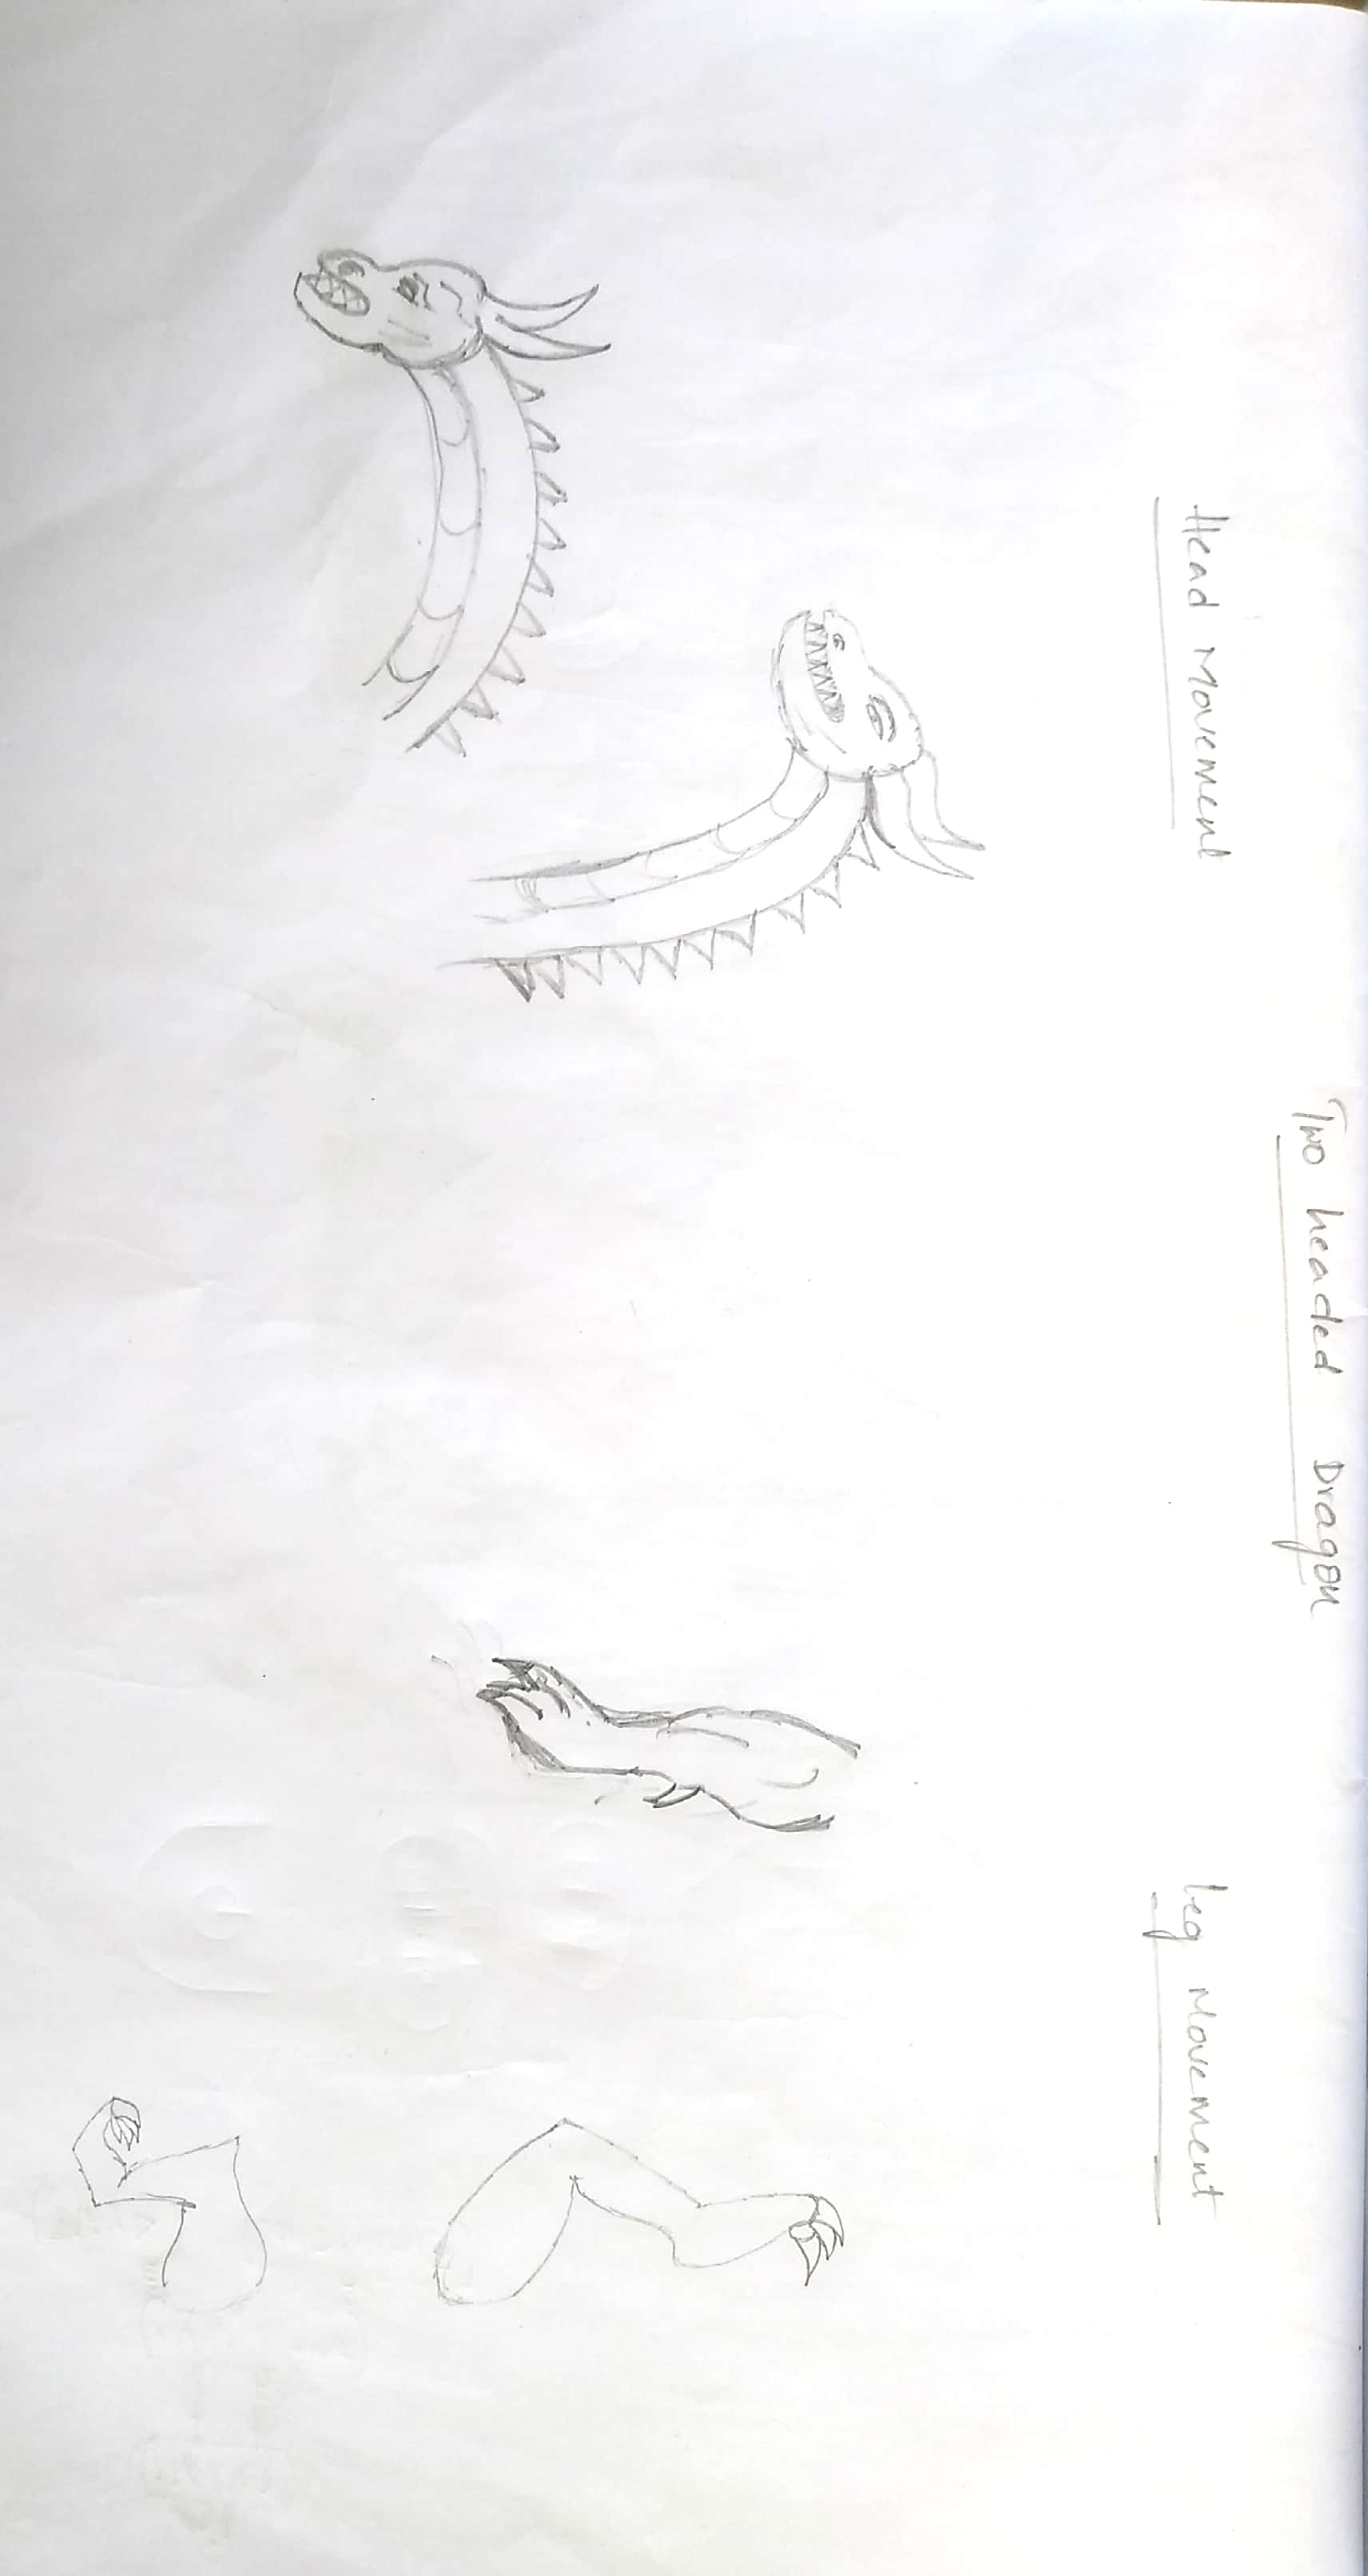 Two headed Dragon
Head Movement
Leg Movement